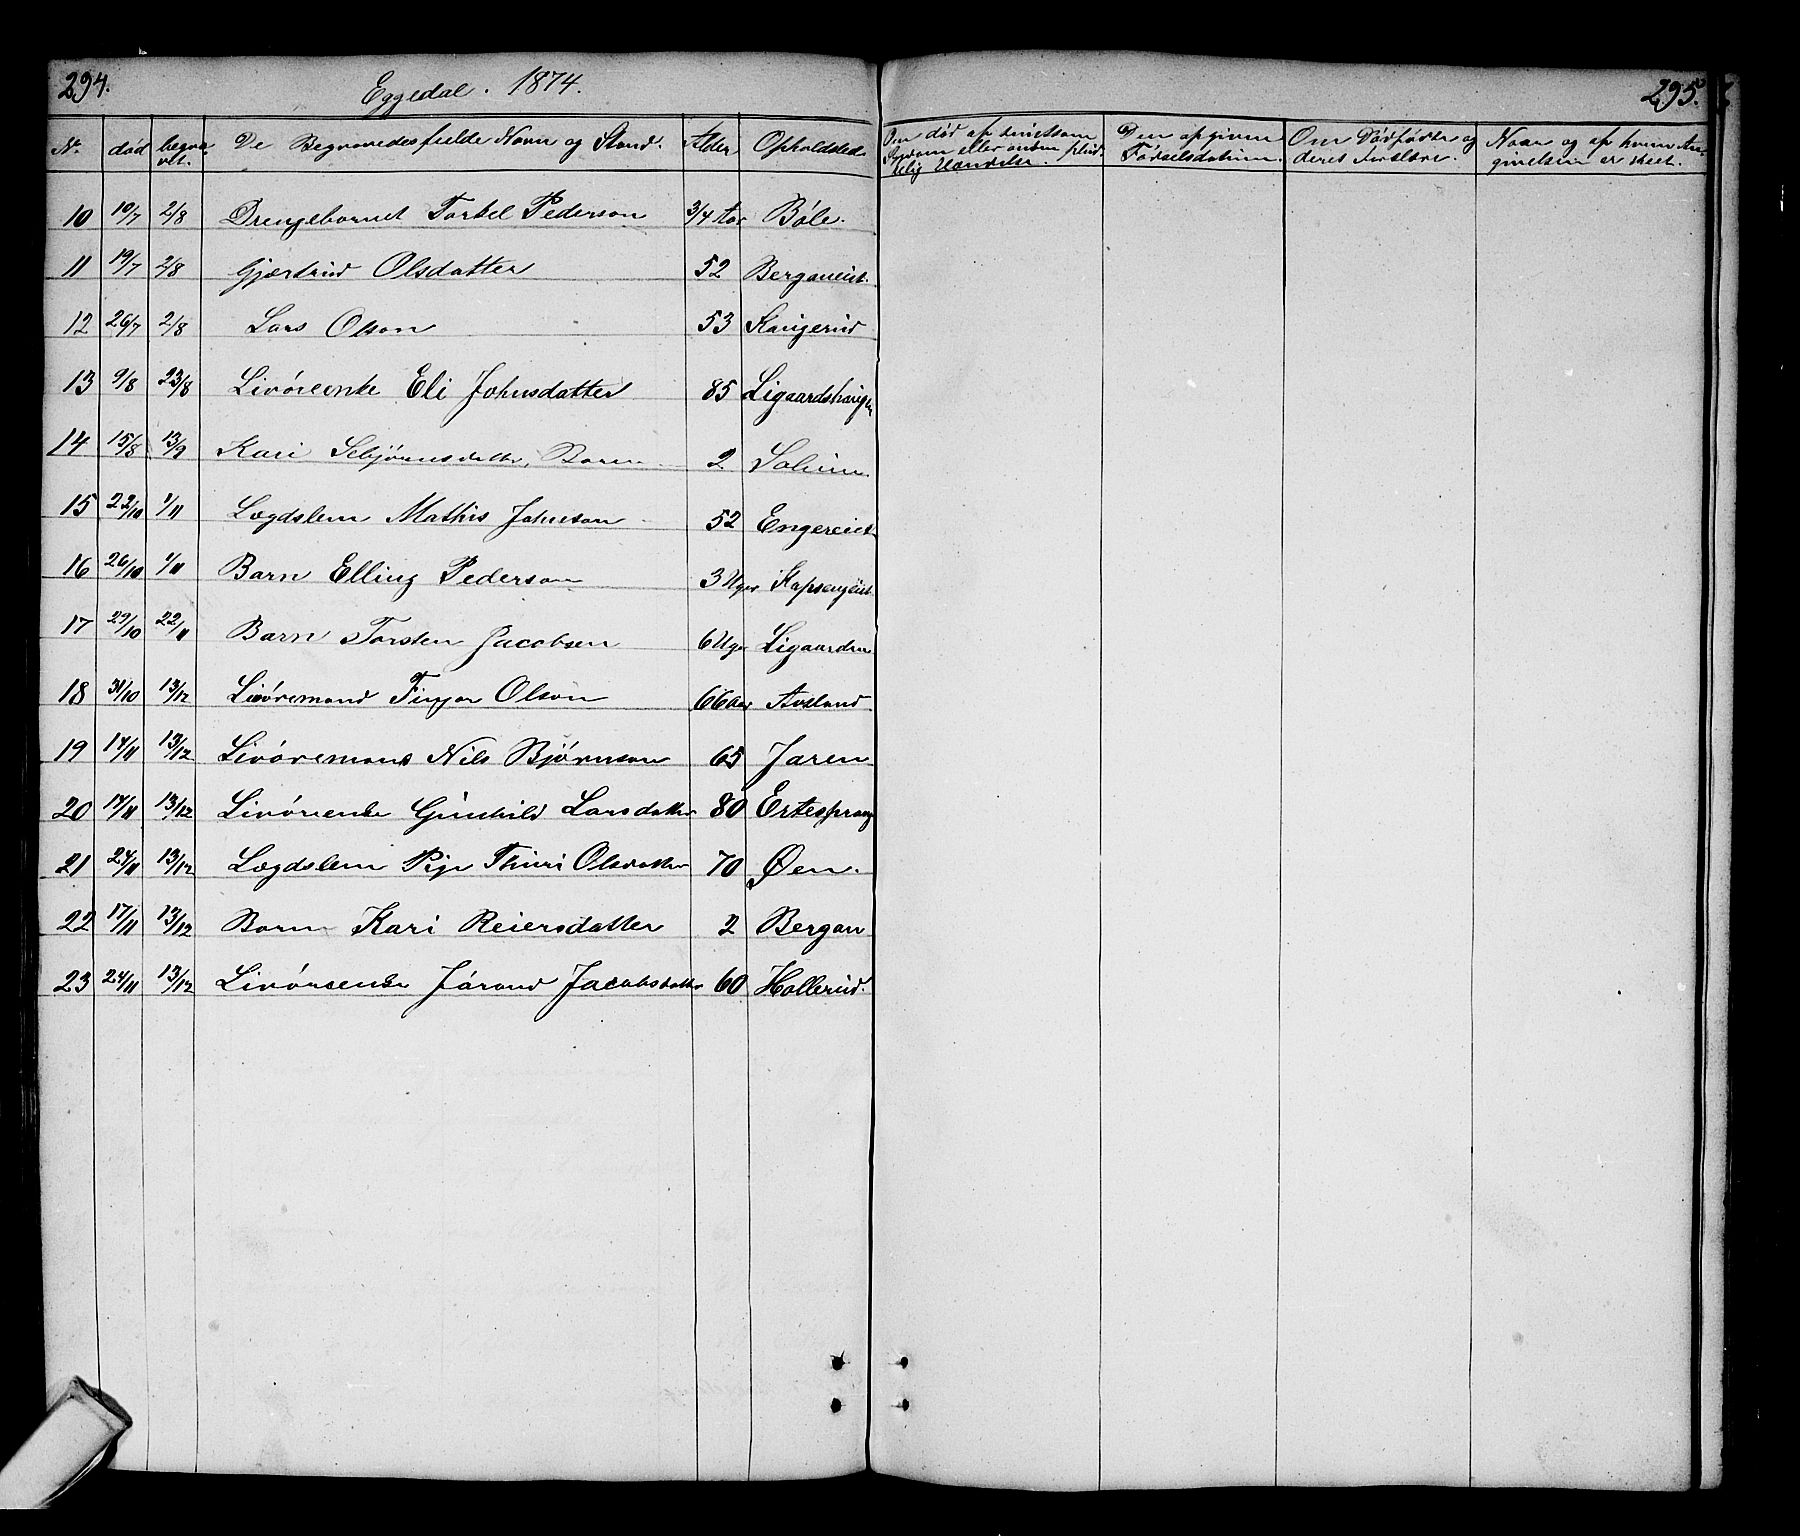 294.
Eggedal. 1874.
295.
No. død begravet. De Begravedes fulde Navn og Stand. Alder Opholdsted
Om død af smitsom Sygdom eller anden pludselig Hændelse.
Den afgivne Fødselsdatum.
Om Dødfødte og deres Forældre.
Naar og af hvem Angivelsen er skeet.
10 19/7 2/8 Drengebarnet Torkel Pederson 3/4 Aar Bøle.
11 19/7 2/8 Gjærtrud Olsdatter 52 Berganeiet.
12 26/7 2/8 Lars Olson 53 Skugerud
13 9/8 23/8 Livøreenke Eli Johnsdatter 85 Ligaardshaugen
14 15/8 13/9 Kari Sebjørnsdatter, Barn 2 Solum
15 22/10 1/11 Lægdslem Mathis Johnson 52 Engereiet
16 26/10 1/11 Barn Elling Pederson 3 Uger
17 29/10 22/11 Barn Torsten Jacobsen 6 Uger Ligaarden
18 31/10 13/12 Livøremand Olson 66 Aar Avsland
19 14/11 13/12 Livøremand Nils Bjørnson 65 Jaren
20 14/11 13/12 Livøreenke Gunhild Larsdatter 80 Ertesprang
21 24/11 13/12 Lægdslem Pige Thuri Olsdatter 70 Øen.
22 17/11 13/12 Barn Kari Reiersdatter 2 Bergan
23 24/11 13/12 Livøreenke Jørand Jacobsdatter 60 Hollerud.